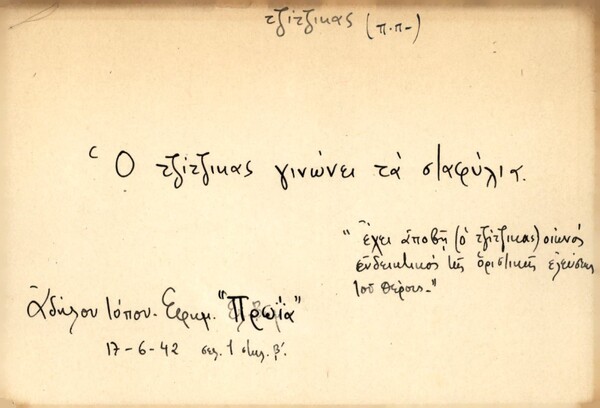 τζίτζικας (π.π-)
Ὁ τζίτζικας γινώνει τὰ σταφύλια.
"Ἔχει ἀποβῆ (ὁ τζίτζικας) οἰωνός
ἐνδεικτικός τῆς ὁριστικῆς ἐλεύσεως
τοῦ θέρους-"
Ἀδήλου τόπου. Ἐφημ. "Πρωΐα"
17-6-42 σελ. 1 στηλ. β'.